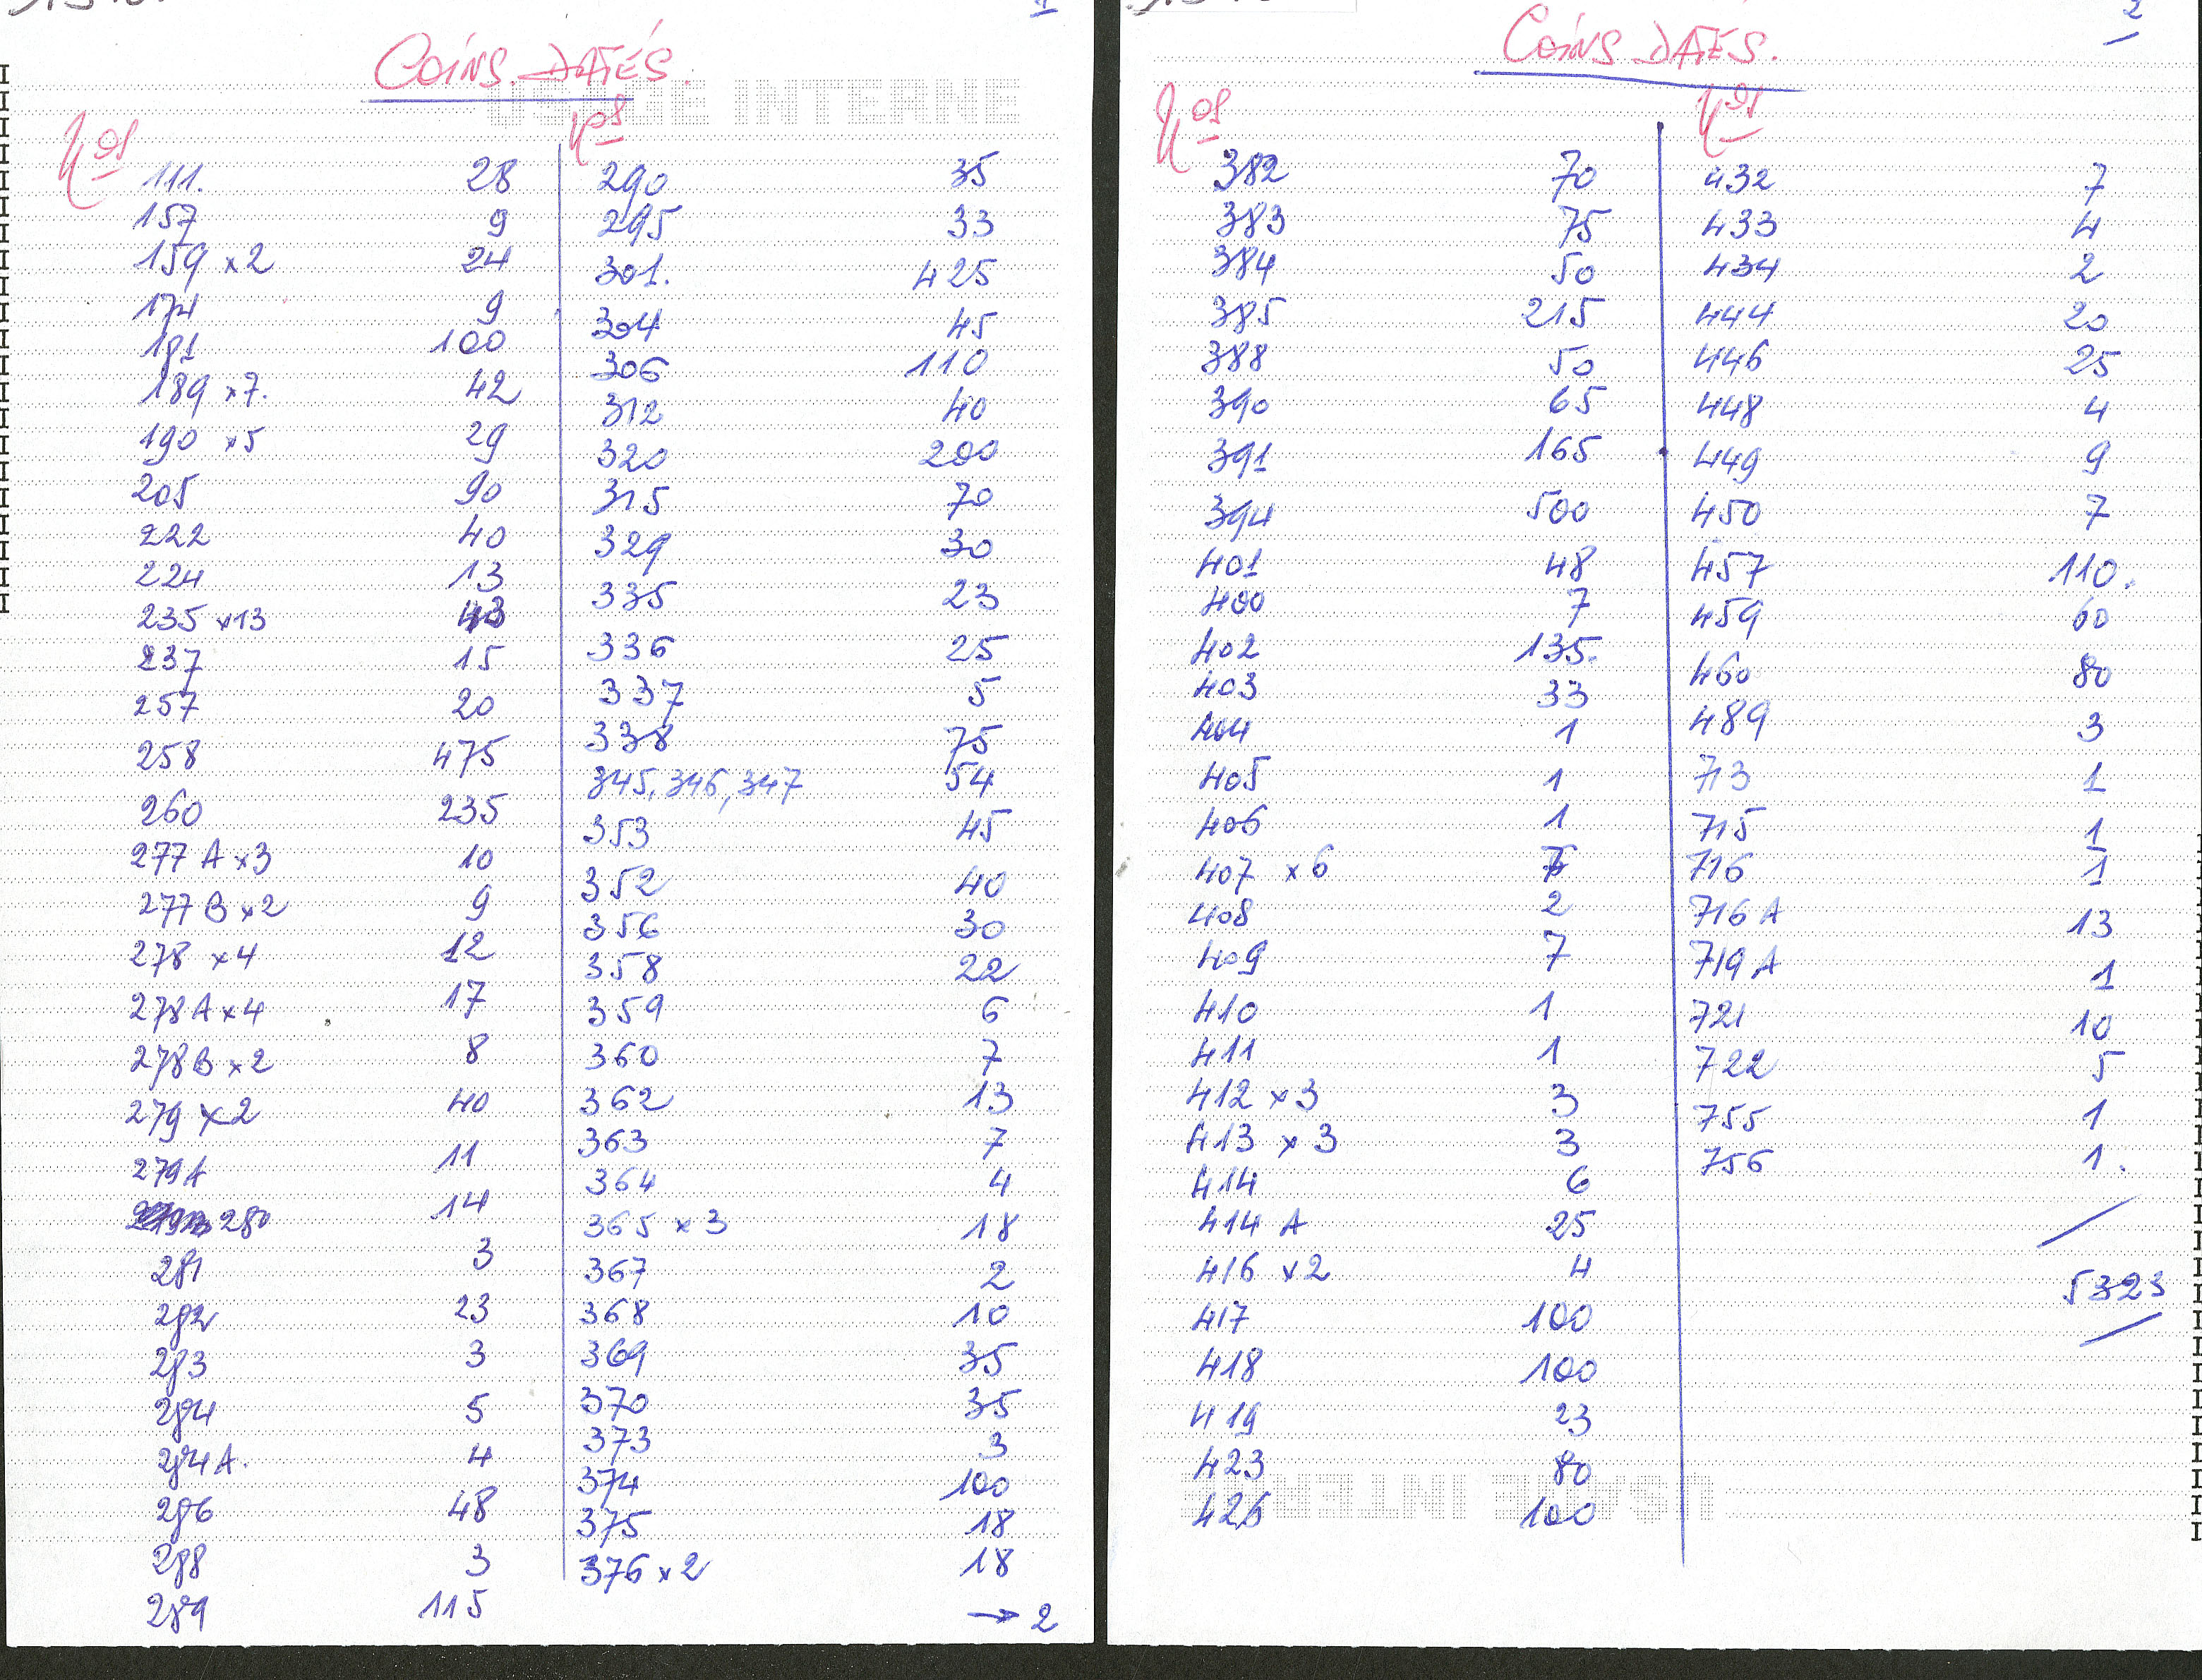 1
COINS DATÉS.
USAGE INTERNE
Nos
111. 28
157 9
159 x2 24
174 9
181 100
189 x7. 42
190 x5 29
205 90
222 40
224 13
235 x13 43
237 15
257 20
258 475
260 235
277 A x3 10
277 B x2 9
278 x4 12
278A x4 17
278B x2 8
279 x2 40
279A 11
280 14
281 3
282 23
283 3
284 5
284A. 4
286 48
288 3
289 115
Nos
290 35
295 33
301. 425
304 45
306 110
312 40
320 200
315 70
329 30
335 23
336 25
337 5
338 75
345, 346, 347 54
353 45
352 40
356 30
358 22
359 6
360 7
362 13
363 7
364 4
365 x 3 18
367 2
368 10
369 35
370 35
373 3
374 100
375 18
376 x 2 18
→ 2
2
COINS DATÉS.
Nos
382 70
383 75
384 50
385 215
388 50
390 65
391 165
394 500
401 48
400 7
402 135.
403 33
404 1
405 1
406 1
407 x 6
408 2
409 7
410 1
411 1
412 x 3 3
413 x 3 3
414 6
414 A 25
416 x2 4
417 100
418 100
419 23
423 80
426 100
USAGE INTERNE
Nos
432 7
433 4
434 2
444 20
446 25
448 4
449 9
450 7
457 110.
459 60
460 80
489 3
713 1
715 1
716 1
716 A 13
719 A 1
721 10
722 5
755 1
756 1.
5323